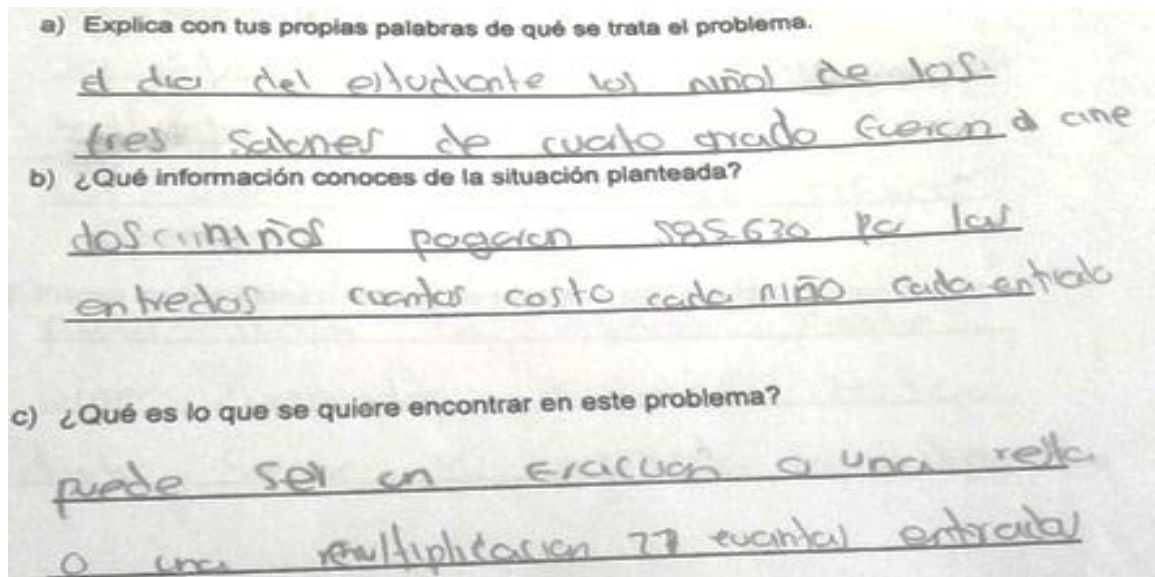 a) Explica con tus propias palabras de qué se trata el problema.
el dia del estudiante los niños de los
tres salones de cuarto grado fueron al cine
b) ¿Qué información conoces de la situación planteada?
dos niños pagaron 585.630 por las
entredas cuantos costo cada niño cada entrada
c) ¿Qué es lo que se quiere encontrar en este problema?
puede ser un o una resta
o una multiplicacion 77 cuantas entradas